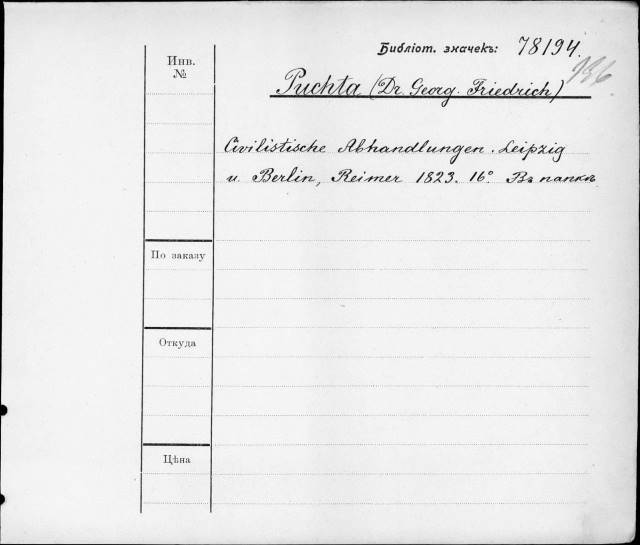 Библіот. значекъ: 78194.
Инв.
№
Puchta (Dr. Georg. Friedrich)
Civilistische Abhandlungen. Leipzig
u. Berlin, Reimer 1823. 16° Въ папкѣ
По заказу
Откуда
Цѣна